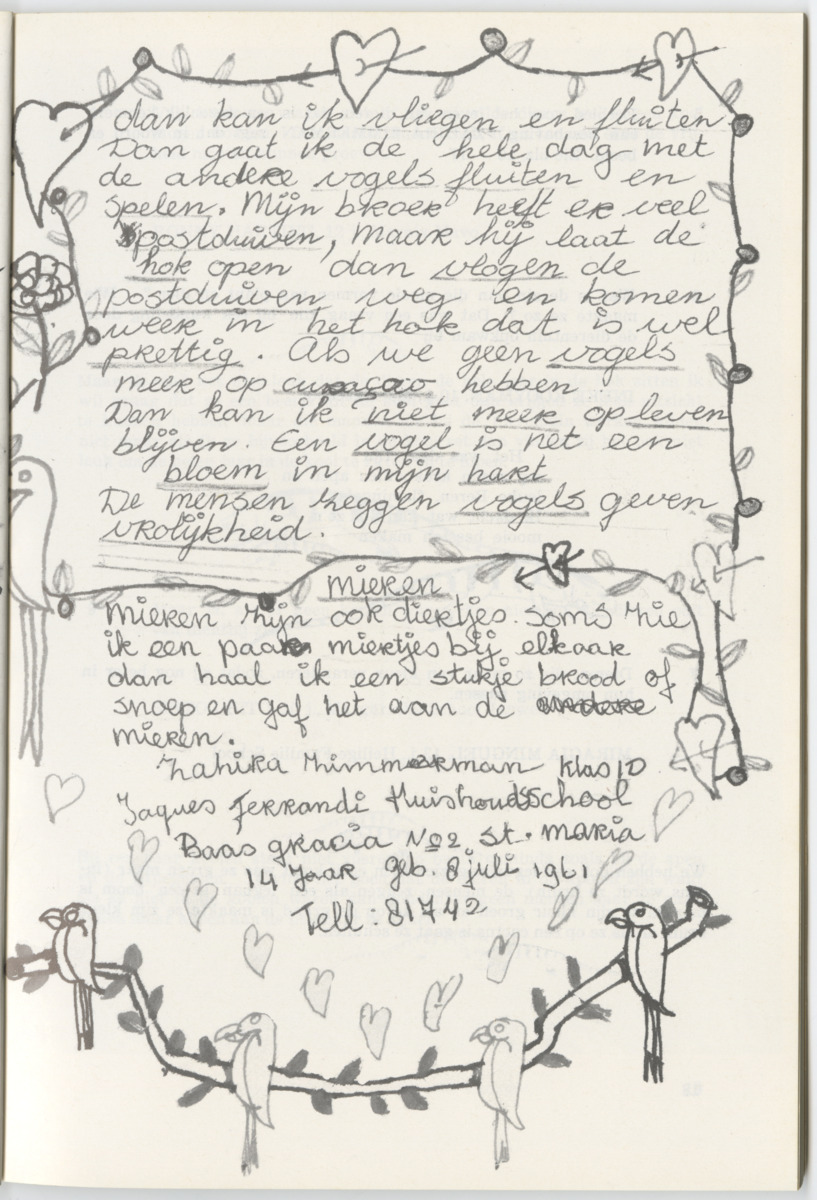 dan kan ik vliegen en fluiten
Dan gaat ik de hele dag met
de andere vogels fluiten en
spelen. Mijn broer heeft er veel
postduiven, maar hij laat de
hok open dan vlogen de
postduiven weg en komen
weer in het hok dat is wel
prettig. Als we geen vogels
meer op curaçao hebben
Dan kan ik niet meer op leven
blijven. Een vogel is net een
bloem in mijn hart
De mensen zeggen vogels geven
vrolijkheid.
mieren
mieren zijn ook diertjes. soms zie
ik een paar miertjes bij elkaar
dan haal ik een stukje brood of
snoep en gaf het aan de andere
mieren.
Zahira Zimmerman klas 1D
Jaques Ferrandi Huishoudschool
Baas gracia No2 St. maria
14 Jaar geb. 8 juli 1961
Tell: 81742